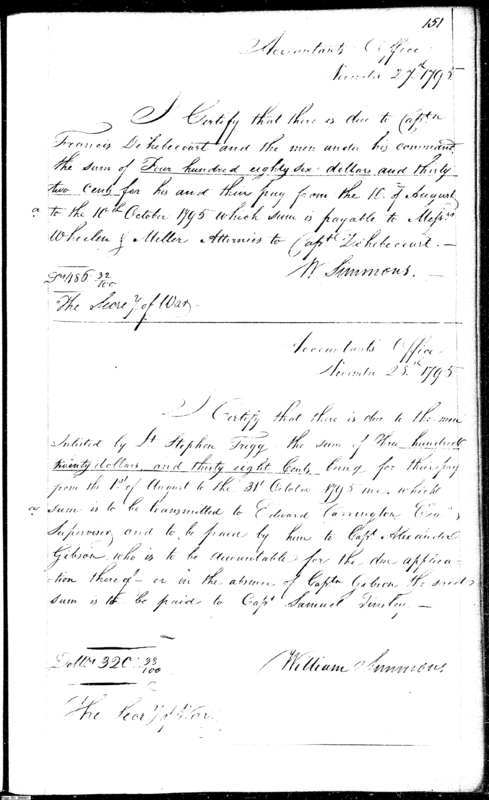 151
Accountants Office
November 27th 1795
I Certify that there is due to Captn
Francis Dihebecourt and the men under his command,
the sum of Four hundred eighty six dollars and thirty
two Cents for his and their pay from the 10. of August
to the 10th October 1795 which sum is payable to Messrs
Wheelen & Miller Attornies to Captn Dihebecourt. —
W Simmons. —
Drs 486 32/100
The Secrey of War
Accountants Office
November 28th 1795
I Certify that there is due to the men
Inlisted by Lt Stephen Trigg the sum of Three hundred
twenty dollars, and thirty eight Cents being for their pay
from the 1st of August to the 31st October 1795 inc. which
sum is to be transmitted to Edward Carrington
Supervisor, and to be paid by him to Capt Alexander
Gibson, who is to be accountable for the due applica-
tion thereof— or in the absence of Captn Gibson the said
sum is to be paid to Capt Samuel Tinsley. —
Dollrs 320 38/100
William Simmons.
The Secry of War